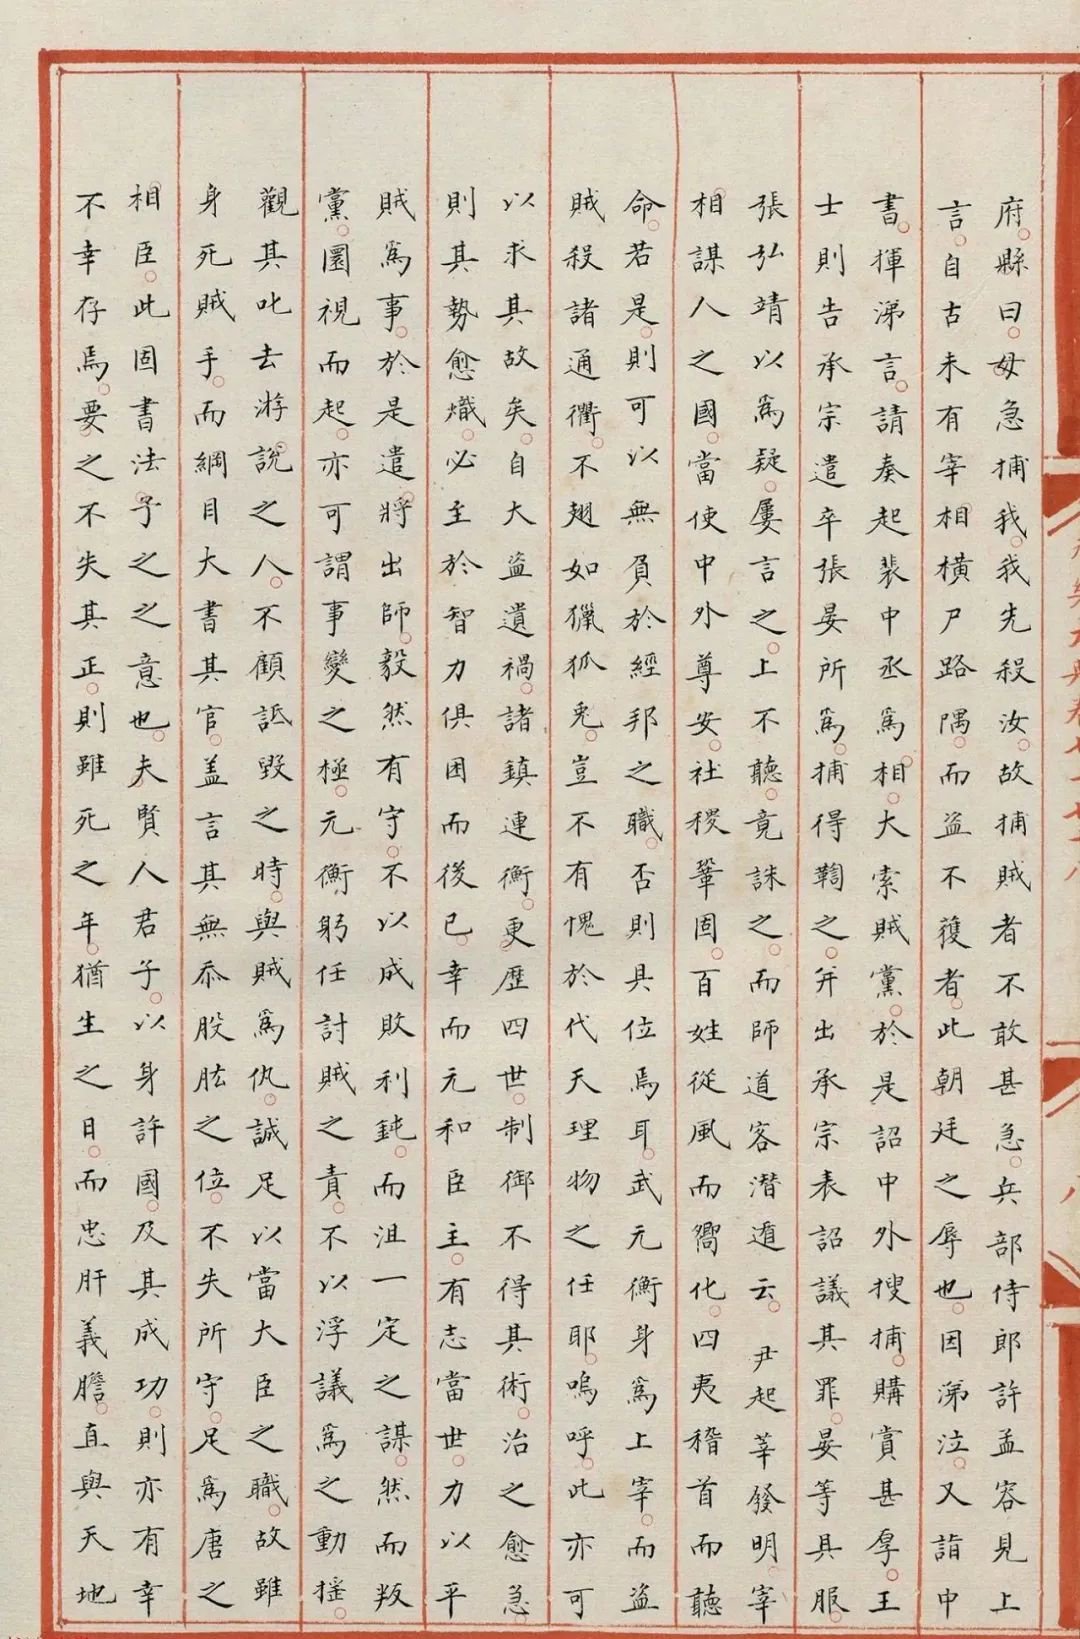 府縣曰毋急捕我我先殺汝故捕賊者不敢甚急兵部侍郎許孟容見上
言自古未有宰相橫尸路隅而盜不獲者此朝廷之辱也因涕泣又詣中
書揮涕言請奏起裴中丞爲相大索賊黨於是詔中外搜捕購賞甚厚王
士則告承宗遣卒張晏所爲捕得鞫之并出承宗表詔議其罪晏等具服
張弘靖以爲疑屢言之上不聽竟誅之而師道客潛遁云 尹起莘發明宰
相謀人之國當使中外尊安社稷鞏固百姓從風而嚮化四夷稽首而聽
命若是則可以無負於經邦之職否則具位焉耳武元衡身爲上宰而盜
賊殺諸通衢不翅如獵狐兎豈不有愧於代天理物之任耶嗚呼此亦可
以求其故矣自大盜遺禍諸鎮連衡更歷四世制御不得其術治之愈急
則其勢愈熾必至於智力俱困而後已幸而元和臣主有志當世力以平
賊爲事於是遣將出師毅然有守不以成敗利鈍而沮一定之謀然而叛
黨圜視而起亦可謂事變之極元衡躬任討賊之責不以浮議爲之動搖
觀其叱去游說之人不顧詆毀之時與賊爲仇誠足以當大臣之職故雖
身死賊手而綱目大書其官盖言其無忝股肱之位不失所守足爲唐之
相臣此固書法予之之意也夫賢人君子以身許國及其成功則亦有幸
不幸存焉要之不失其正則雖死之年猶生之日而忠肝義膽直與天地
八